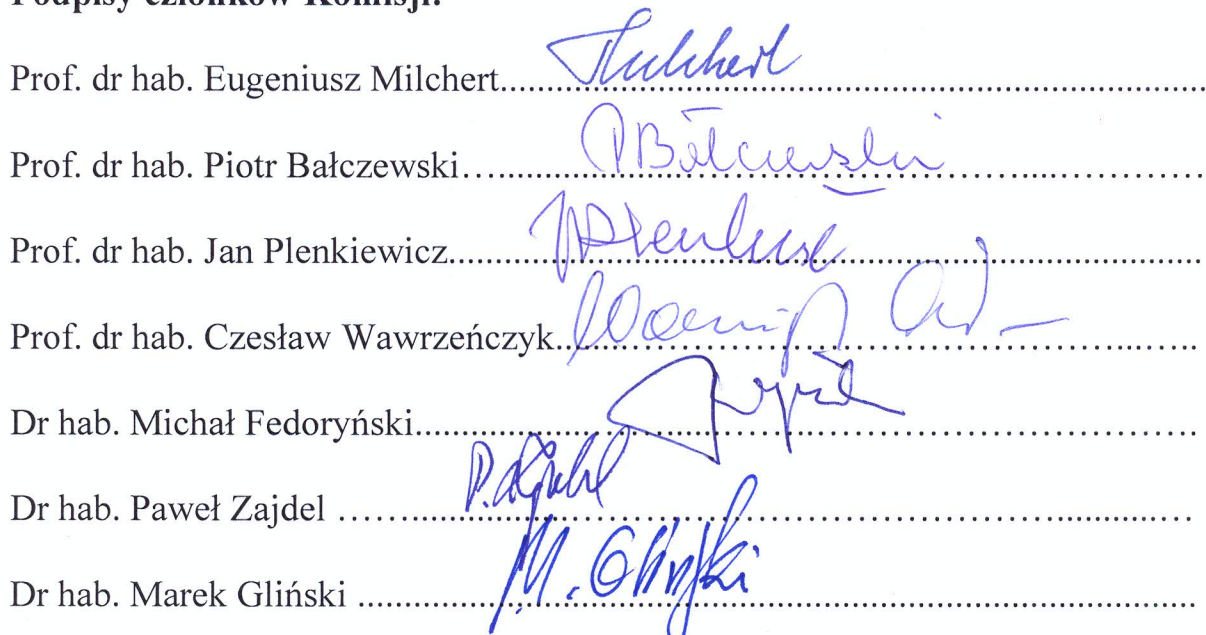 Podpisy członków Komisji:
Prof. dr hab. Eugeniusz Milchert
Prof. dr hab. Piotr Bałczewski
Prof. dr hab. Jan Plenkiewicz
Prof. dr hab. Czesław Wawrzeńczyk
Dr hab. Michał Fedoryński
Dr hab. Paweł Zajdel
Dr hab. Marek Gliński